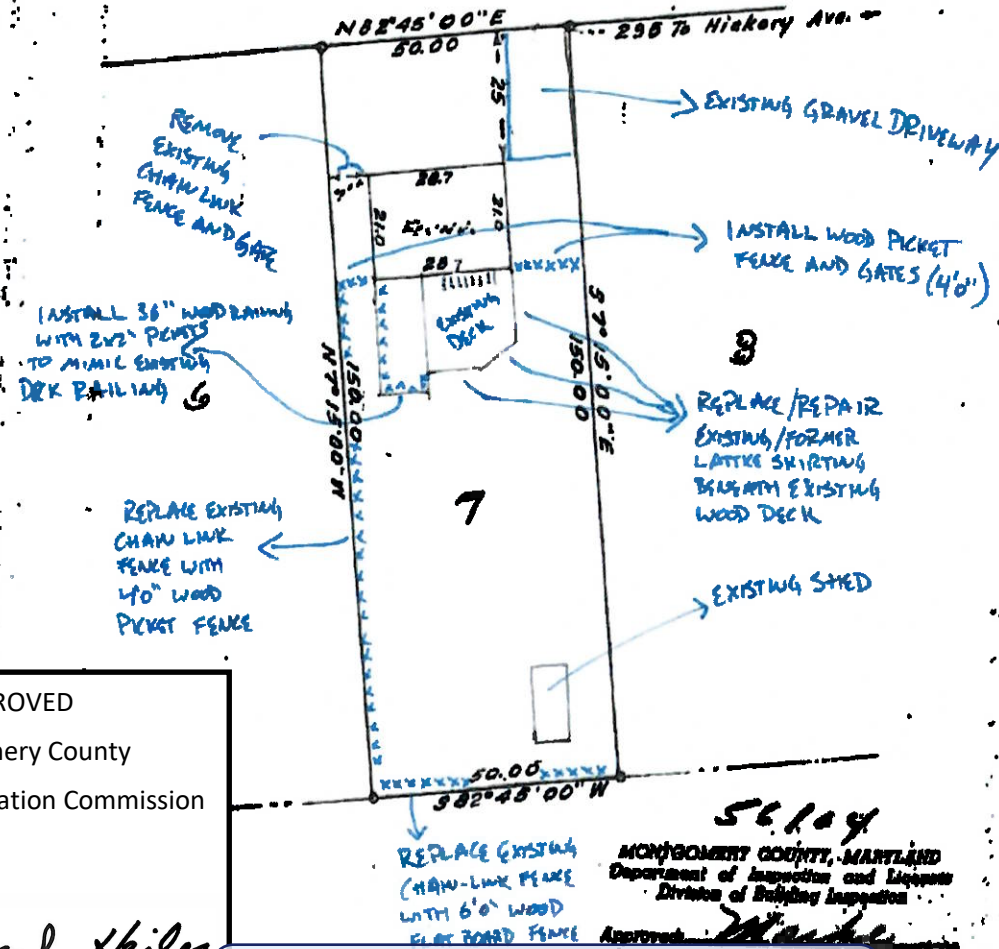 N82°45'00"E
50.00
295 To Hickory Ave.
25
EXISTING GRAVEL DRIVEWAY
REMOVE
EXISTING
CHAIN LINK
FENCE AND GATE
28.7
21.0
21.0
28.7
INSTALL WOOD PICKET
FENCE AND GATES (4'0")
EXISTING
DECK
INSTALL 36" WOOD RAILING
WITH 2x2" PICKETS
TO MIMIC EXISTING
DECK RAILING
6
N7°15'00"W
150.00
S7°15'00"E
150.00
8
REPLACE/REPAIR
EXISTING/FORMER
LATTICE SKIRTING
BENEATH EXISTING
WOOD DECK
7
REPLACE EXISTING
CHAIN LINK
FENCE WITH
4'0" WOOD
PICKET FENCE
EXISTING SHED
50.00
S82°45'00"W
REPLACE EXISTING
CHAIN-LINK FENCE
WITH 6'0" WOOD
FLAT BOARD FENCE
MONTGOMERY COUNTY, MARYLAND
Department of Inspection and Licenses
Division of Building Inspection
Approved
ROVED
ery County
ation Commission